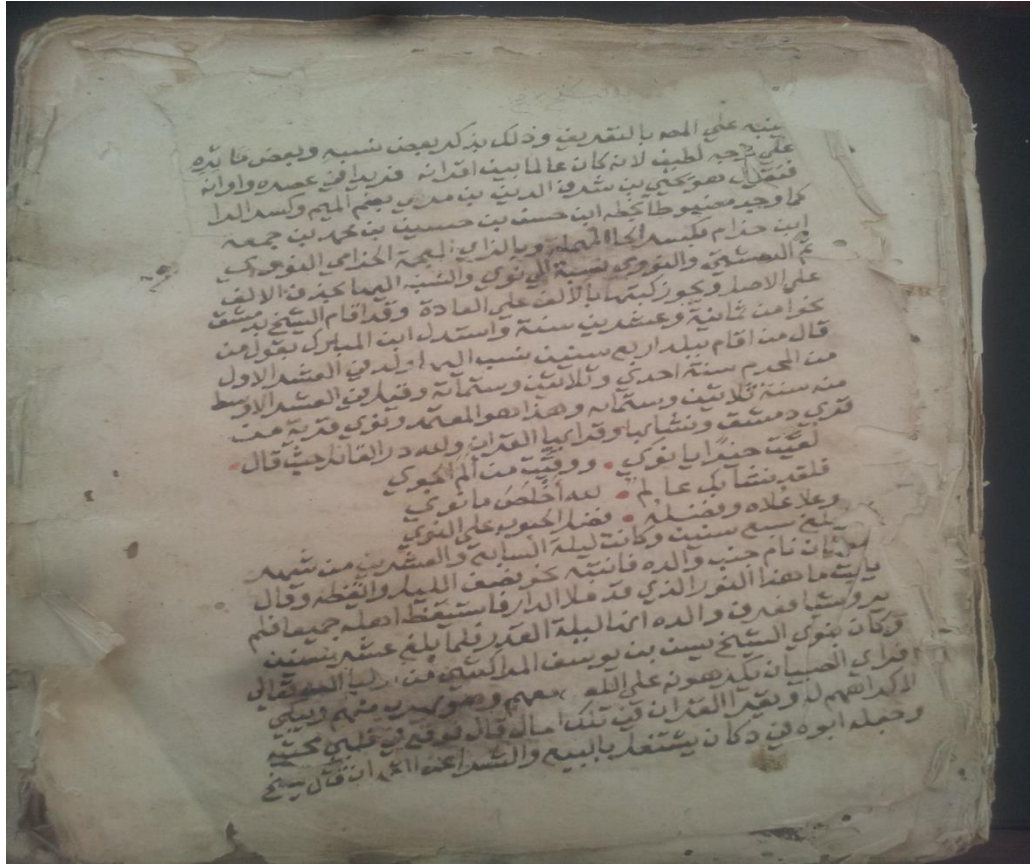 ينبه علي المص بالتعريف وذلك بذكر بعض نسبه وبعض مآثره
علي وجه لطيف لانه كان عالما بين اقرانه فريدا في عصره واوانه
فنقول هو يحيي بن شرف الدين بن مري بضم الميم وكسر الرا
كما وجد مضبوطا بخطه ابن حسن بن حسين بن محمد بن جمعة
ابن حزام بكسر الحا المهملة وبالزاي المعجمة الحزامي النووي
ثم الدمشقي والنووي نسبة الي نوي والنسبة اليها بحذف الالف
علي الاصل ويجوز كتبها بالالف علي العادة وقد اقام الشيخ بدمشق
نحوا من ثمانية وعشرين سنة واستدل ابن المبارك بقول من
قال من اقام ببلد اربع سنين نسب اليها ولد في العشر الاول
من المحرم سنة احدي وثلاثين وستمائة وقيل في العشر الاوسط
منه سنة ثلاثين وستمائه وهذا هو المعتمد ونوي قرية من
قري دمشق ونشا بها وقرا بها القران ولله در القائل حيث قال
لقيت خيرا يا نوي ووقيت من ألم النوي
فلقد نشا بك عالم لله أخلص ما نوي
وعلا علاه وفضله فضل الحبوب علي النوي
بلغ سبع سنين وكانت ليلة السابع والعشرين من شهر
نام جنب والده فانتبه نحو نصف الليل وايقظه وقال
يابت ما هذا النور الذي قد ملا الدار فاستيقظ اهله جميعا فلم
يروا شيا فعرف والده انها ليلة القدر فلما بلغ عشر سنين
وكان بنوي الشيخ يسن بن يوسف المراكشي من اوليا الله تعالي
فراي الصبيان يكرهونه علي اللعب معهم وهو يهرب منهم ويبكي
لاكراههم له ويقرا القران في تلك الحال قال فوقع في قلبي محبته
وجعله ابوه في دكان يشتغل بالبيع والشرا عن القران قال الشيخ